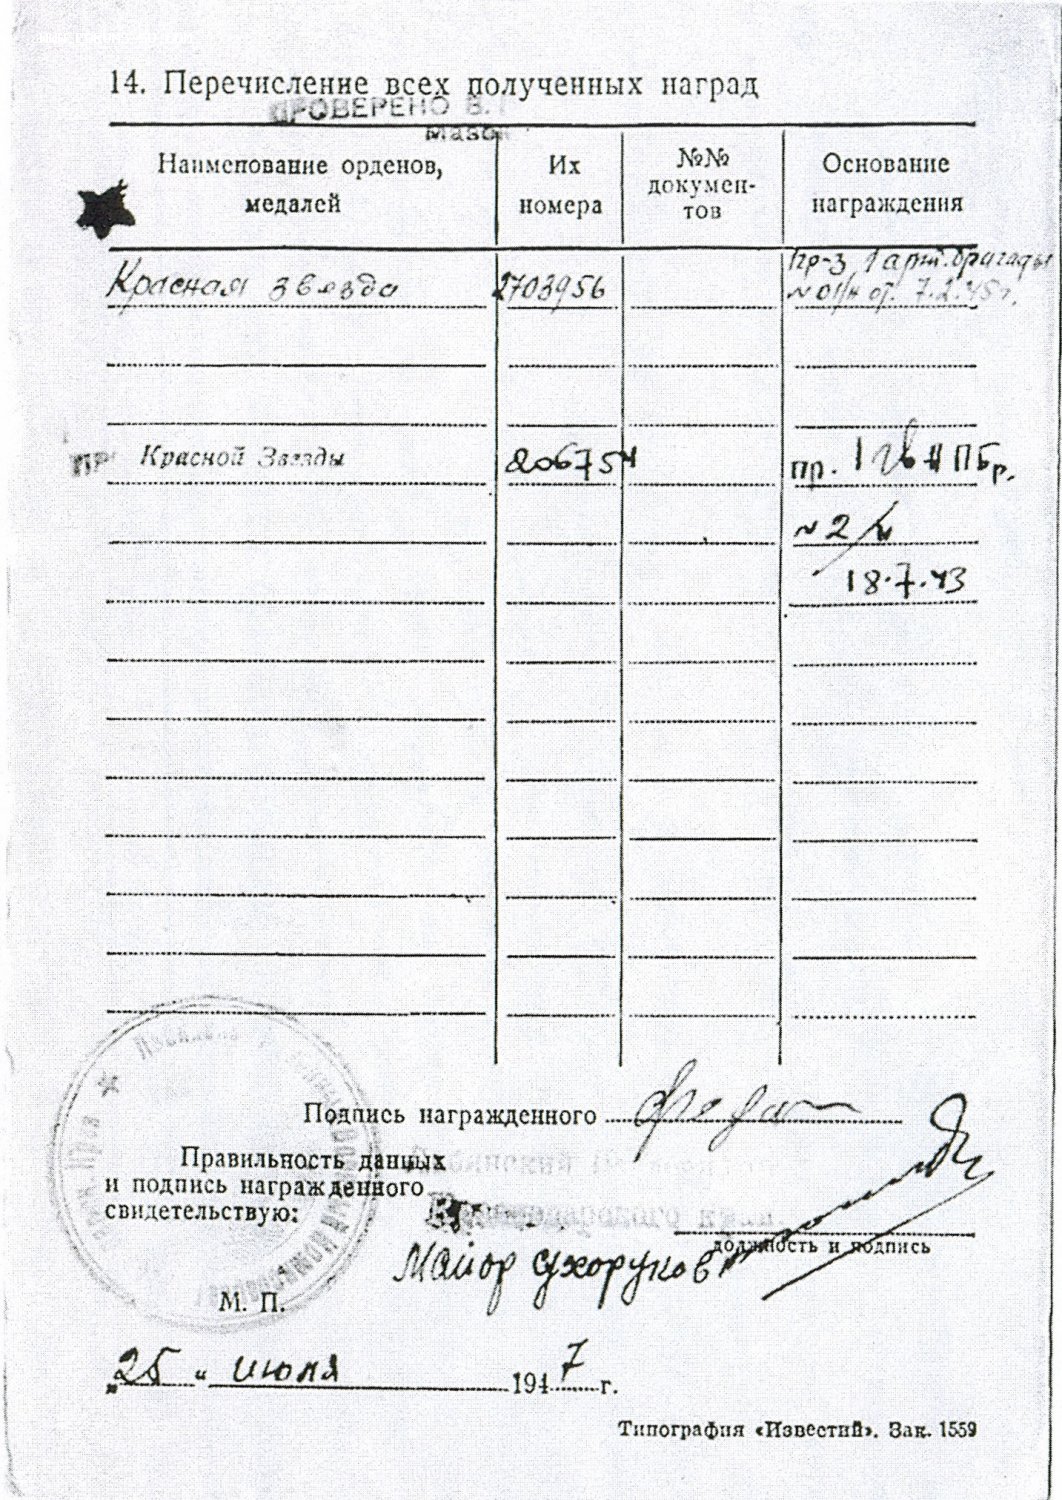 14. Перечисление всех полученных наград
ПРОВЕРЕНО В.
Наименование орденов, медалей
Их номера
№№ докумен-
тов
Основание награждения
Красная звезда 2703956 Пр-з 1 арт. бригады
№ 01/н от. 7.2.45 г.
Красной Звезды 206754 пр. 1 гв А П Бр.
№ 2/н
18.7.43
Подпись награжденного
Правильность данных
и подпись награжденного
свидетельствую:
должность и подпись
Майор Сухоруков
М. П.
"25" июля 1947 г.
Типография «Известий». Зак. 1559